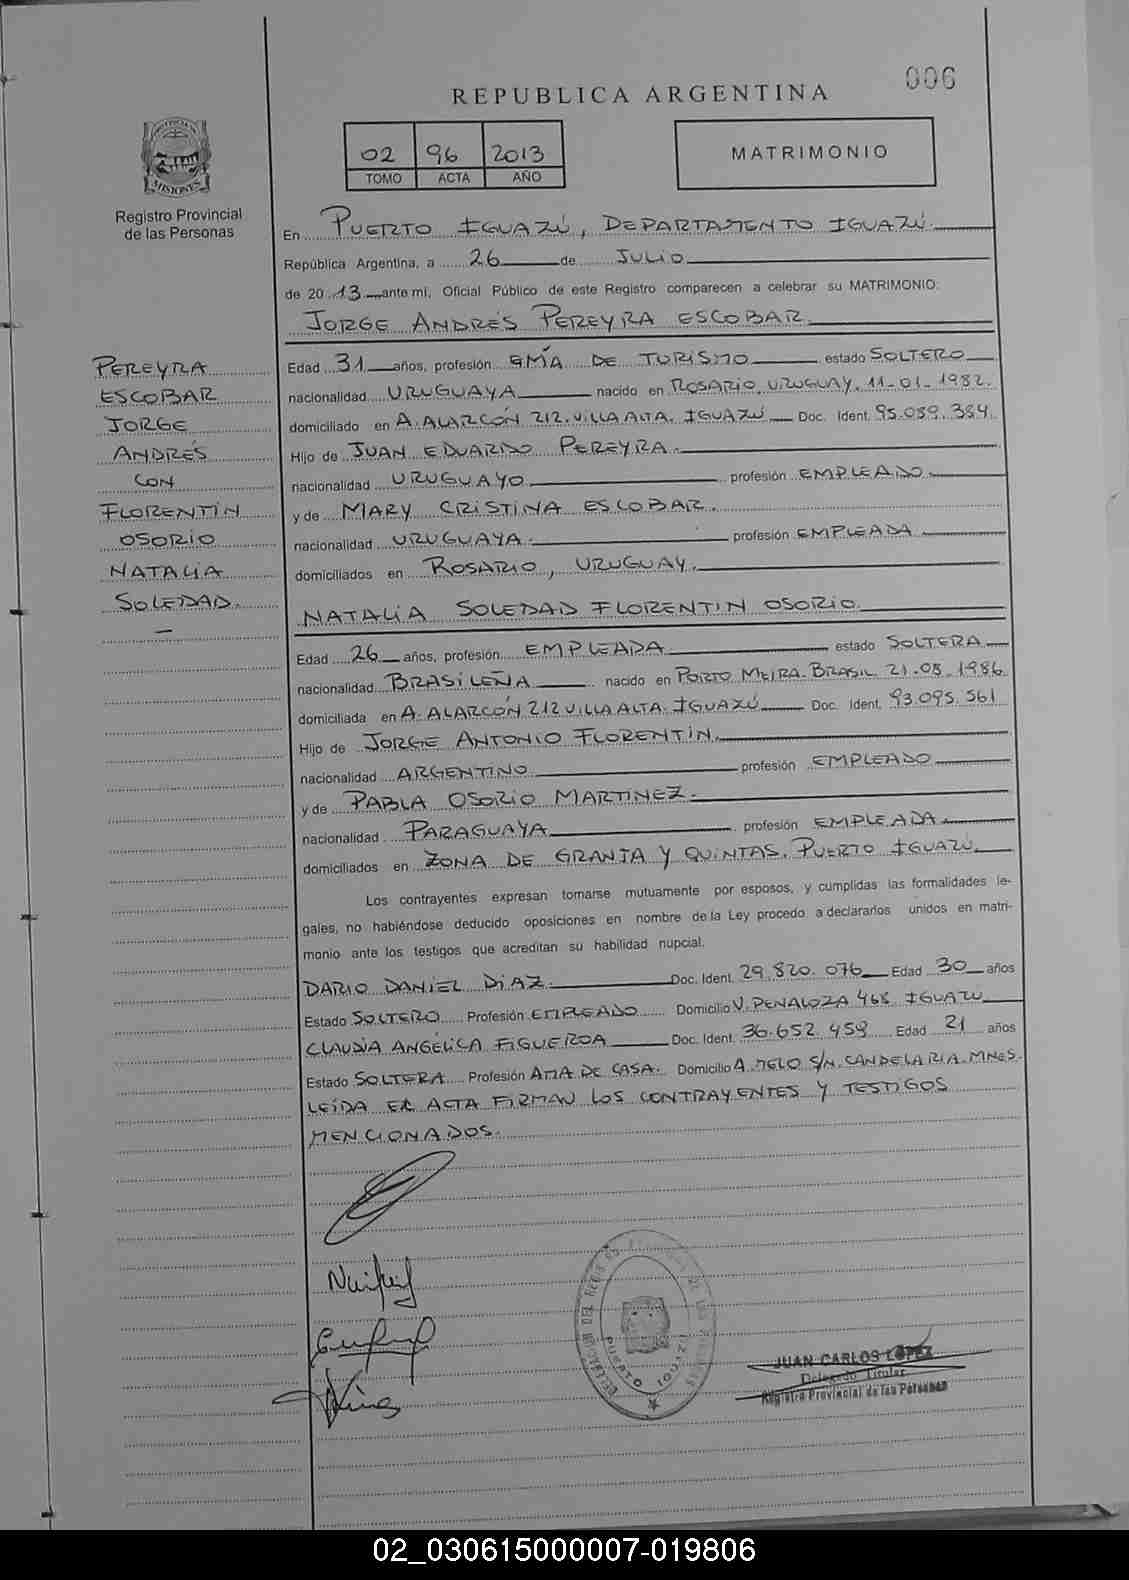 006
REPUBLICA ARGENTINA
PROVINCIA DE MISIONES
Registro Provincial
de las Personas
02 96 2013
TOMO ACTA AÑO
MATRIMONIO
En PUERTO IGUAZÚ, DEPARTAMENTO IGUAZÚ.
República Argentina, a 26 de JULIO
de 2013 ante mi, Oficial Público de este Registro comparecen a celebrar su MATRIMONIO:
JORGE ANDRÉS PEREYRA ESCOBAR
PEREYRA
ESCOBAR
JORGE
ANDRÉS
CON
FLORENTIN
OSORIO
NATALIA
SOLEDAD.
Edad 31 años, profesión GUÍA DE TURISMO estado SOLTERO
nacionalidad URUGUAYA nacido en ROSARIO, URUGUAY. 11-01-1982.
domiciliado en A. ALARCÓN 212. VILLA ALTA. IGUAZÚ Doc. Ident. 95.089.384
Hijo de JUAN EDUARDO PEREYRA.
nacionalidad URUGUAYO profesión EMPLEADO
y de MARY CRISTINA ESCOBAR.
nacionalidad URUGUAYA. profesión EMPLEADA
domiciliados en ROSARIO, URUGUAY.
NATALIA SOLEDAD FLORENTIN OSORIO
Edad 26 años, profesión EMPLEADA estado SOLTERA
nacionalidad BRASILEÑA nacido en PORTO MEIRA. BRASIL 21.08.1986
domiciliada en A. ALARCÓN 212 VILLA ALTA. IGUAZÚ Doc. Ident. 93.095.561
Hijo de JORGE ANTONIO FLORENTIN.
nacionalidad ARGENTINO profesión EMPLEADO
y de PABLA OSORIO MARTINEZ.
nacionalidad PARAGUAYA profesión EMPLEADA
domiciliados en ZONA DE GRANJA Y QUINTAS. PUERTO IGUAZÚ.
Los contrayentes expresan tomarse mutuamente por esposos, y cumplidas las formalidades le-
gales, no habiéndose deducido oposiciones en nombre de la Ley procedo a declararlos unidos en matri-
monio ante los testigos que acreditan su habilidad nupcial.
DARIO DANIEL DIAZ. Doc. Ident. 29.820.076 Edad 30 años
Estado SOLTERO Profesión EMPLEADO Domicilio V. PEÑALOZA 468 IGUAZU
CLAUDIA ANGÉLICA FIGUEROA Doc. Ident. 36.652.459 Edad 21 años
Estado SOLTERA Profesión AMA DE CASA. Domicilio A. MELO S/N. CANDELARIA. MNES.
LEÍDA EL ACTA FIRMAN LOS CONTRAYENTES Y TESTIGOS
MENCIONADOS.
JUAN CARLOS LOPEZ
Delegado Titular
Registro Provincial de las Personas
02_030615000007-019806